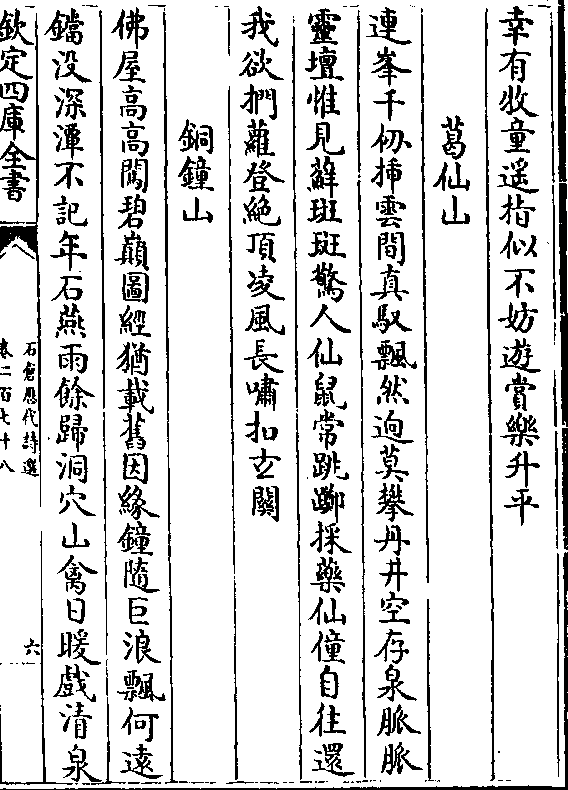 幸有牧童遥指似不妨遊賞樂升平
葛仙山
連峯千仞揷雲間真馭飄然逈莫攀丹井空存泉脈脈
靈壇惟見蘚斑斑驚人仙鼠常跳躑採藥仙僮自往還
我欲捫蘿登絶頂凌風長嘯扣玄關
銅鐘山
佛屋高高闖碧巔圖經猶載舊因緣鐘隨巨浪飄何遠
鐺没深潭不記年石燕雨餘歸洞穴山禽日暖戲清泉
欽定四庫全書
石倉歷代詩選
卷二百七十八
六